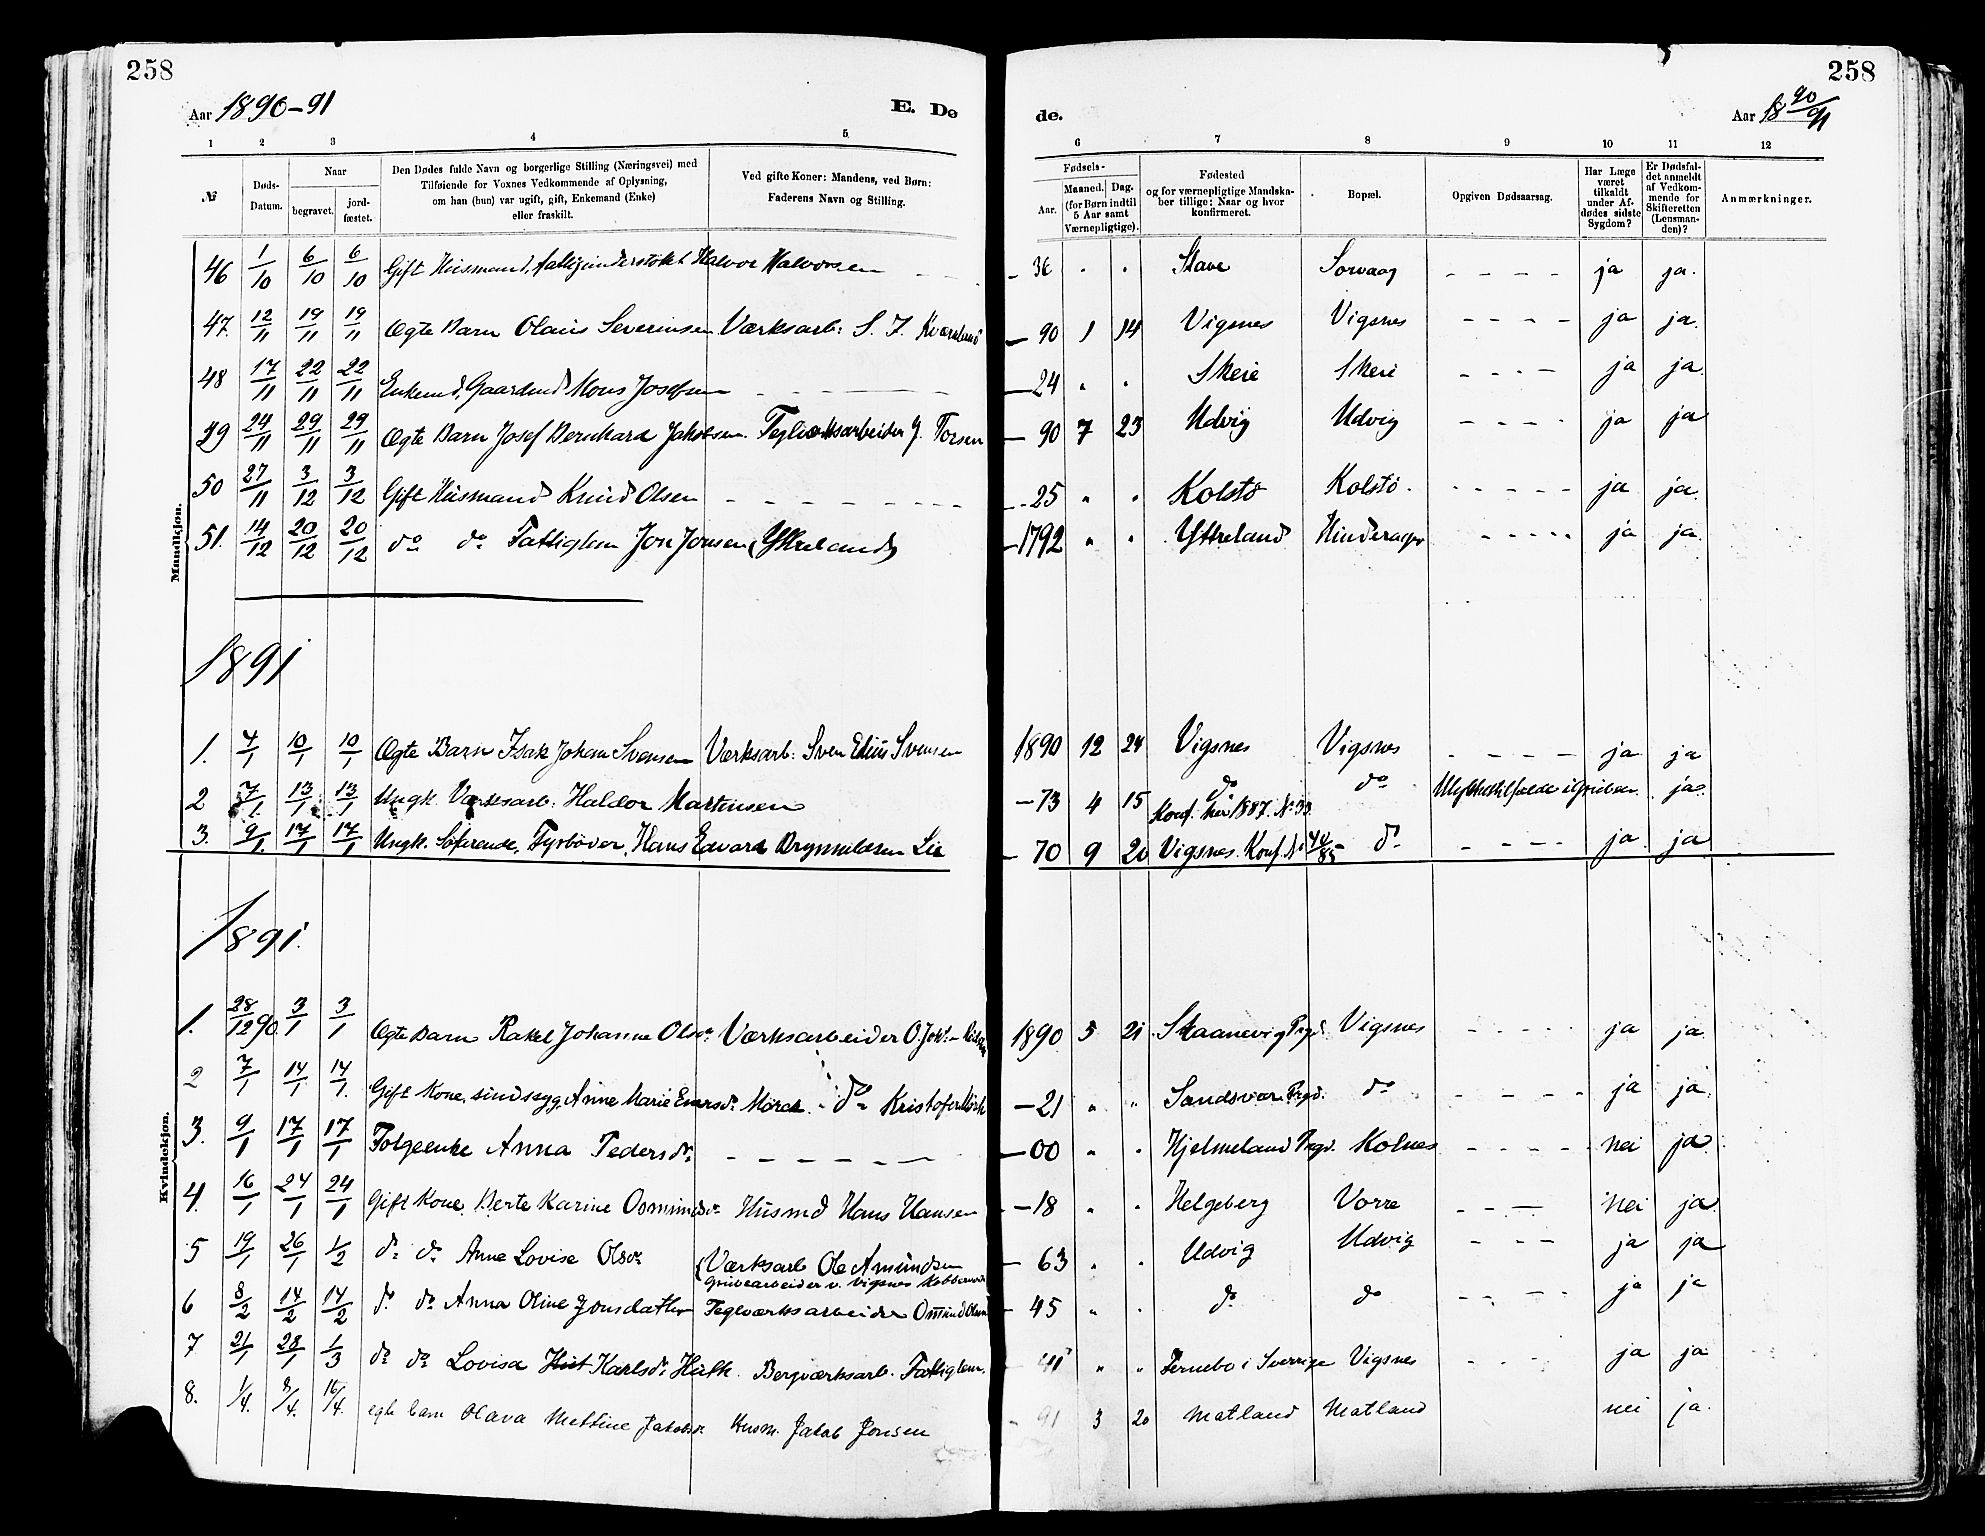 258
258
Aar 1890-91
E. Dø
de.
Aar 18 90/91
1 2 3 4 5 6 7 8 9 10 11 12
№
Døds-Datum.
Naar
begravet.
jord-fæstet.
Den Dødes fulde Navn og borgerlige Stilling (Næringsvei) med
Tilføiende for Voxnes Vedkommende af Oplysning,
om han (hun) var ugift, gift, Enkemand (Enke)
eller fraskilt.
Ved gifte Koner: Mandens, ved Børn:
Faderens Navn og Stilling.
Fødsels-
Aar.
Maaned. Dag.
(for Børn indtil
5 Aar samt
Værnepligtige).
Fødested
og for værnepligtige Mandska-
ber tillige: Naar og hvor
konfirmeret.
Bopæl.
Opgiven Dødsaarsag.
Har Læge
været
tilkaldt
under Af-
dødes sidste
Sygdom?
Er Dødsfal-
det anmeldt
af Vedkom-
mende for
Skifteretten
(Lensman-
den)?
Anmærkninger.
Mandkjøn.
46 1/10 6/10 6/10 Gift Husmand, Halvor Halvorsen - - - 36 " " Stave Sorvaag - - - - ja ja.
47. 12/11 19/11 19/11 Ægte Barn Olaus Severinsen Værksarb: S. J. - 90 1 14 Vigsnes Vigsnes - - - - ja ja.
48 17/11 22/11 22/11 Enkemd, Gaardmd Mons Josefsen - - - - - 24 " " Skeie Skeie - - - - ja ja.
29 24/11 29/11 29/11 Ægte Barn Josef Bernhard Jakobsen. Teglværksarbeider J. Torsen - 90 7 23 Udvig Udvig - - - - ja ja
50 27/11 3/12 3/12 Gift Husmand Knud Olsen - - - - - - 25 " " Kolstø Kolstø. - - - - - ja ja.
51. 14/12 20/12 20/12 do do Fattiglem Jon Jonsen (Ytreland) - 1792 " " Yttreland Hinderager - - - - - ja ja.
1891
1. 4/1 10/1 10/1 Ægte Barn Isak Johan Svensen Værksarb: Sven Edius Svensen 1890 12 24 Vigsnes Vigsnes - - - - ja ja
2 7/1 13/1 13/1 Ungk. Værksarb. Haldor Martensen - 73 4 15 do Konf. her 1887. No 33. do Ulykkestilfælde i Gruben. ja.
3. 9/1 17/1 17/1 Ungk. Søfarende, Fyrbøder, Hans Edvard Brynnildsen Lie - 70 9 20 Vigsnes. Konf. No 40/85 do - - - - ja ja
1891.
Kvindekjøn.
1. 28/12 90 3/1 3/1 Ægte Barn Rakel Johanne Olsdr Værksarbeider O. 1890 5 21 Skaanevig Prgd. Vigsnes - - - - ja ja.
2 7/1 14/1 14/1. Gift Kone, sindssyg, Anne Marie Mørck. - do - Kristofer Mørk - 21 " " Sandsvær Prgd. do - - - - ja ja.
3. 9/1 17/1 17/1 Folgeenke Anna Pedersdr. - - - - - - 00 " " Hjelmeland Prgd. Kolnes - - - - nei ja.
4. 16/1 24/1 24/1 Gift Kone. Berte Karine Osmundsdr Husmd Hans Hansen - 18 " " Helgeberg Vorre - - - nei ja.
5 19/1 26/1 1/2 do do Anne Lovise Olsdr. Værksarb Ole Amundsen
Grubearbeider v. Vigsnes Kobberværk - 63 " " Udvig Udvig - - - ja ja
6 8/2 14/2 14/2 do do Anna Oline Jonsdatter Teglværksarbeider Omund Olsen - 45 " " do do - - - - ja ja
7 21/1 28/1 1/3 do do Lovisa Karlsdr Hultk. Bergværksarb. Fattiglem. - 41 " " Fernebo i Sverrige Vigsnes - - - ja ja
8. 1/4. 9/4. 16/4. egte barn Olava Mettine Jakobsdr. Husm. Jakob Jonsen - 91 3 20 Matland Matland nei ja.